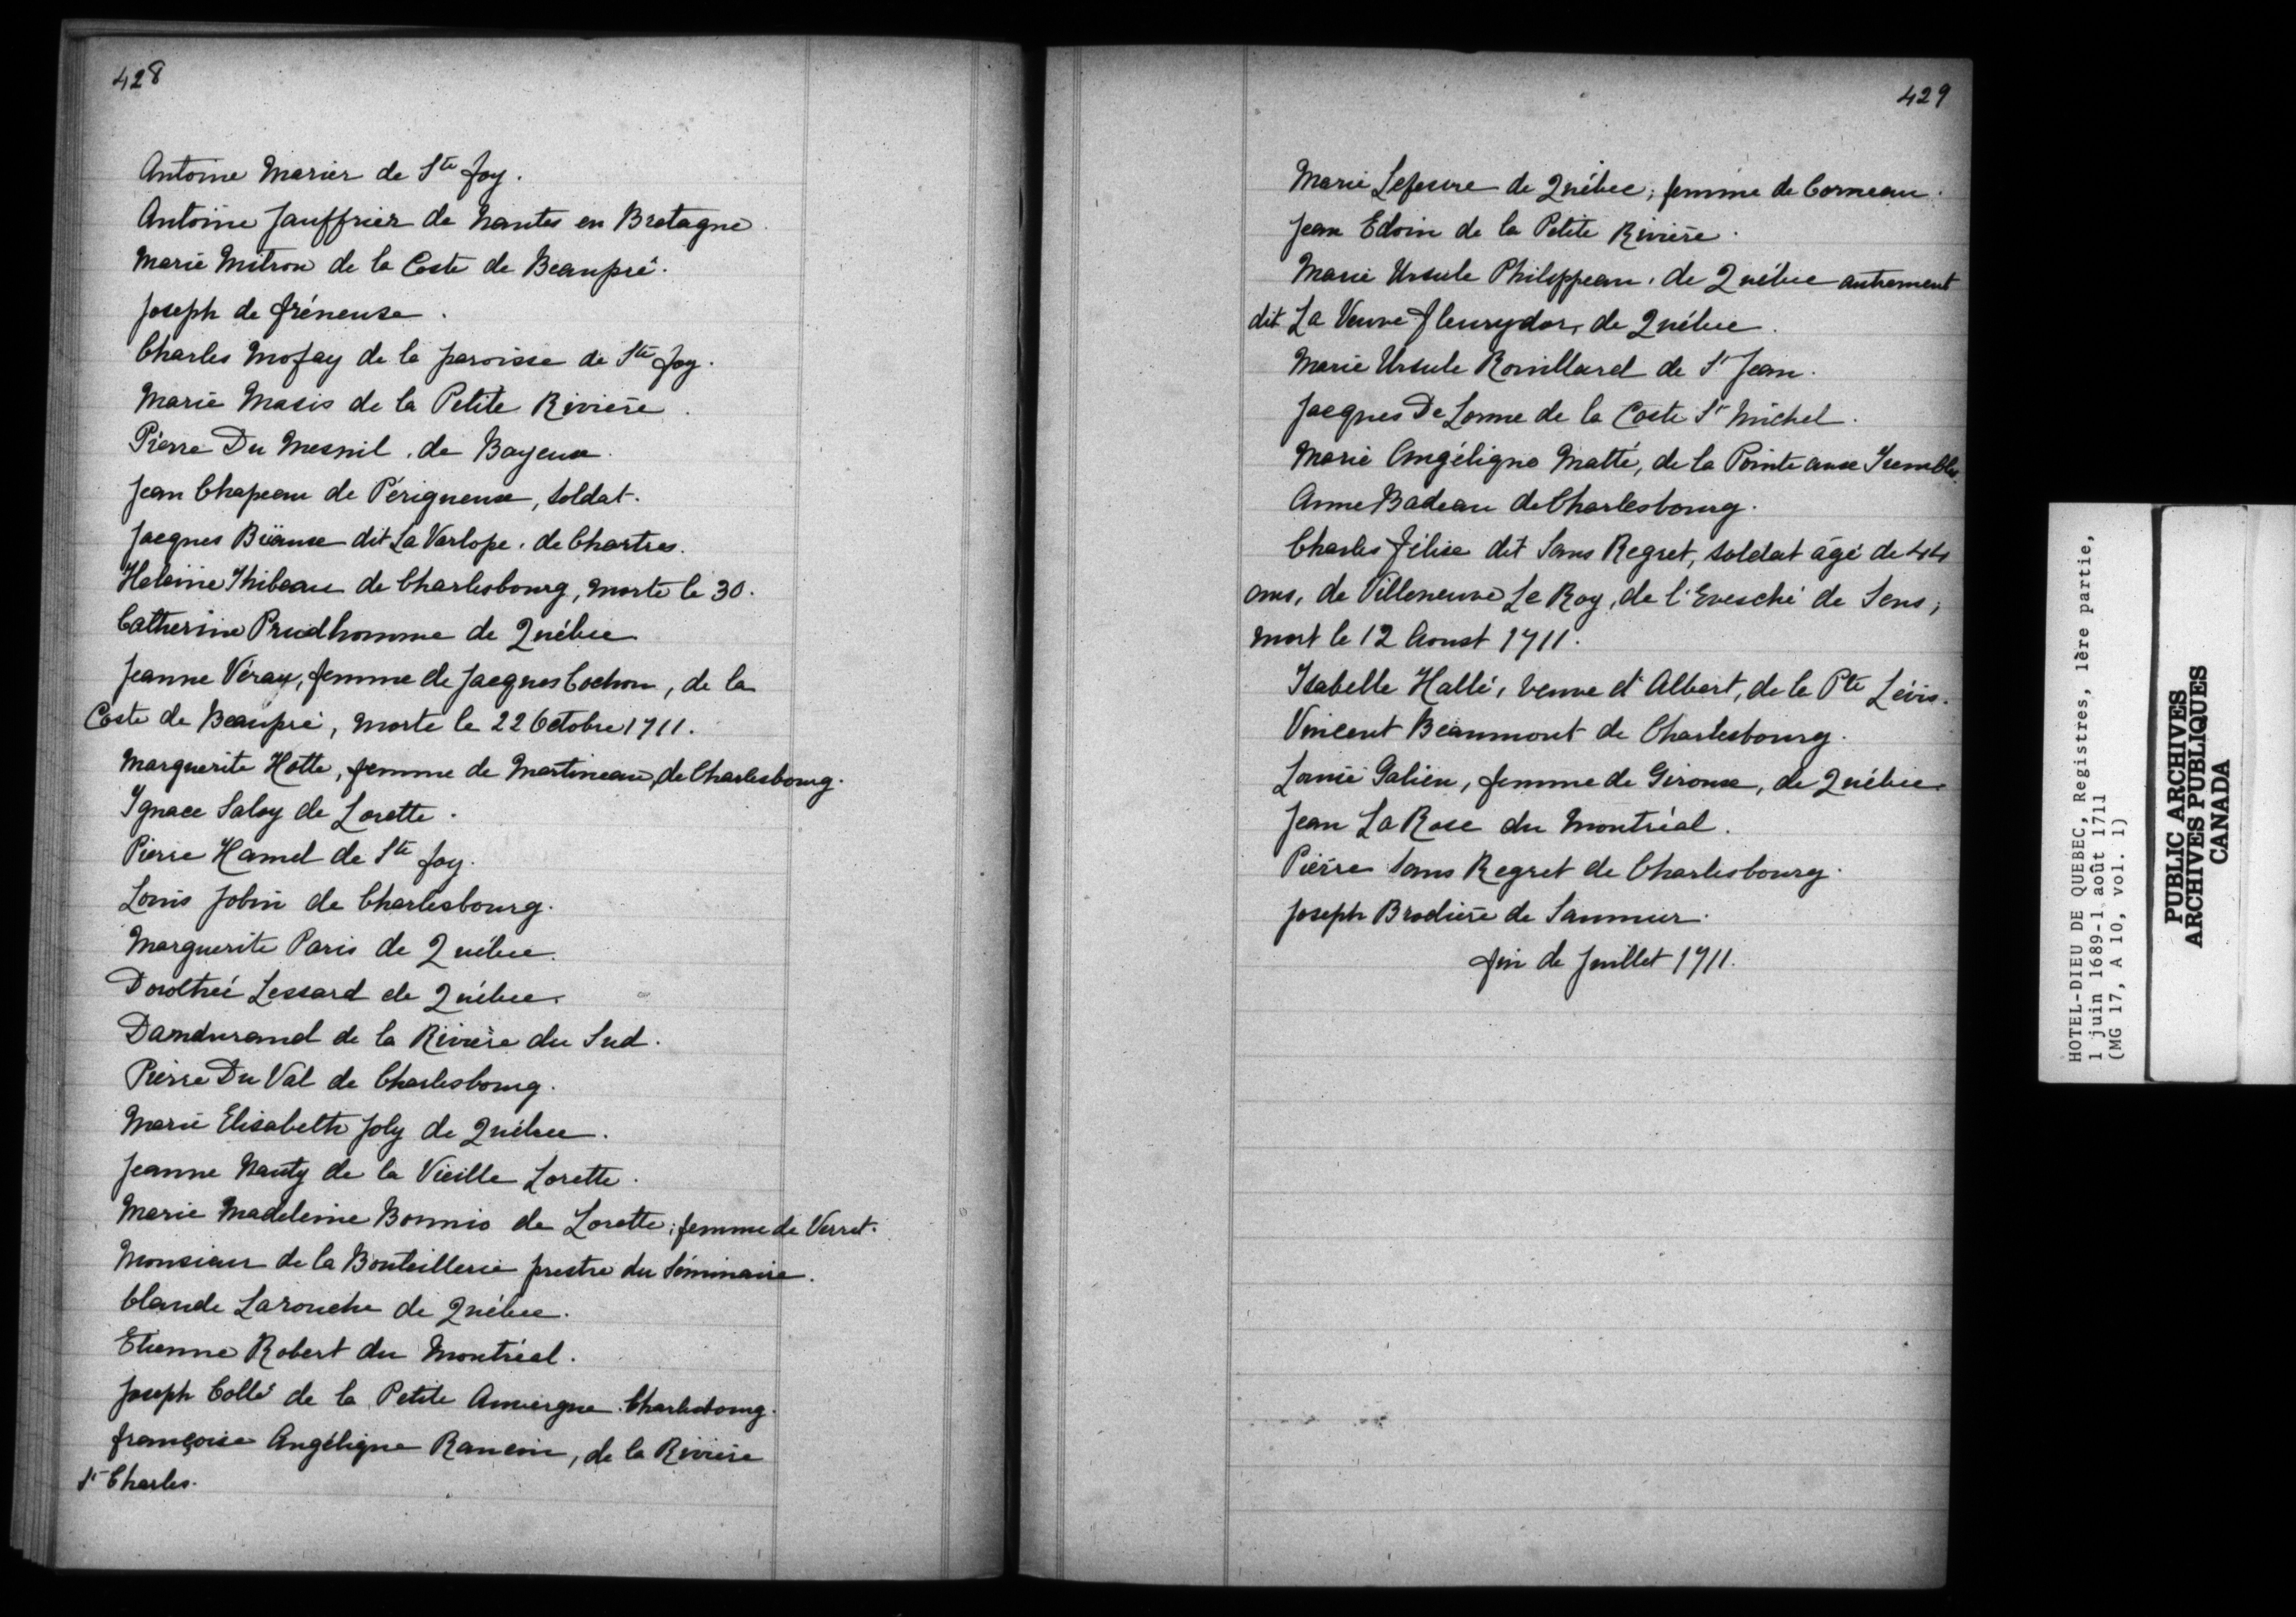 428
Antoine Marier de Ste Foy.
Antoine Jauffrier de Nantes en Bretagne.
Marie Mitron de la Coste de Beaupré.
Joseph de fréneuse.
Charles Mofay de la paroisse de Ste Foy.
Marie Masis de la Petite Rivière.
Pierre Du Mesnil, de Bayeux.
Jean Chapeau de Périgueux, soldat.
Jacques dit La Varlope, de Chartres.
Helaine Thibeau de Charlesbourg, morte le 30.
Catherine Prudhomme de Québec
Jeanne Véray, femme de Jacques Cochon, de la
Coste de Beaupré, morte le 22 Octobre 1711.
Marguerite Hotte, femme de Martineau, de Charlesbourg.
Ignace Saloy de Lorette.
Pierre Hamel de Ste Foy.
Louis Jobin de Charlesbourg.
Marguerite Paris de Québec.
Dorothée Lessard de Québec.
Dandurand de la Rivière du Sud.
Pierre Du Val de Charlesbourg.
Marie Elisabeth Joly de Québec.
Jeanne Nauty de la Vieille Lorette.
Marie Madeleine Bonnio de Lorette; femme de Verret.
Monsieur de la Bouteillerie prestre du Séminaire.
Claude Larouche de Québec.
Etienne Robert du Montréal.
Joseph Collé de la Petite Auvergne. Charlesbourg.
françoise Angélique Rancin, de la Rivière
St Charles.
429
Marie Lefesvre de Québec; femme de Corneau.
Jean Edoin de la Petite Rivière.
Marie Ursule Philippeau, de Québec autrement
dit La Veuve fleurydor, de Québec.
Marie Ursule Rouillard de St Jean.
Jacques De Lonne de la Coste St Michel.
Marie Angélique Matté, de la Pointe aux Trembles.
Anne Badeau de Charlesbourg.
Charles félise dit Sans Regret, soldat âgé de 44
ans, de Villeneuve Le Roy, de l'Evesché de Sens;
mort le 12 Aoust 1711.
Isabelle Hallé, veuve d'Albert, de la Pte Lévis.
Vincent Beaumont de Charlesbourg.
Louise Galien, femme de Giroux, de Québec.
Jean La Rose du Montréal.
Pierre Sans Regret de Charlesbourg.
Joseph Brodière de Saumur.
fin de Juillet 1711.
HOTEL-DIEU DE QUEBEC, Registres, 1ère partie,
1 juin 1689-1 août 1711
(MG 17, A 10, vol. 1)
PUBLIC ARCHIVES
ARCHIVES PUBLIQUES
CANADA